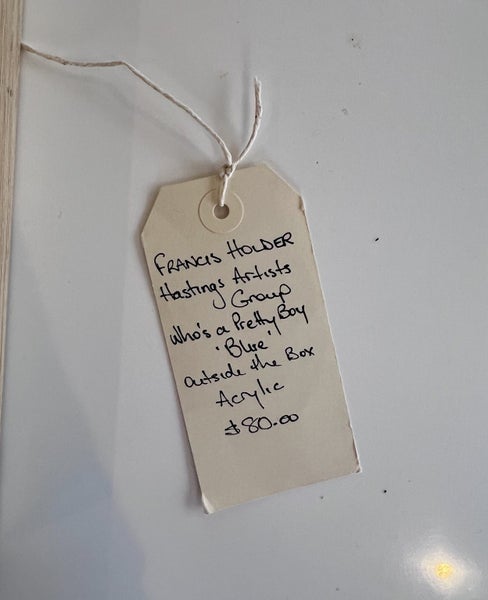 FRANCIS HOLDER
Hastings Artists
Group
Who's a Pretty Boy
'Blue'
Outside the Box
Acrylic
$80.00